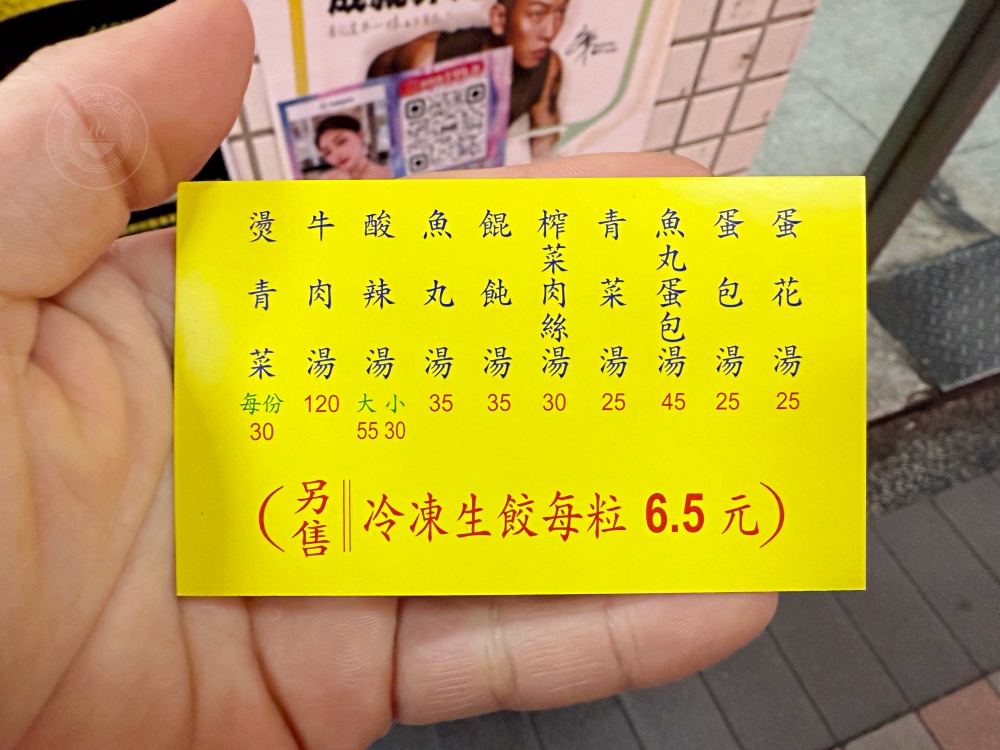 蛋花湯 25
蛋包湯 25
魚丸蛋包湯 45
青菜湯 25
榨菜肉絲湯 30
餛飩湯 35
魚丸湯 35
酸辣湯 大 小 55 30
牛肉湯 120
燙青菜 每份 30
(另售||冷凍生餃每粒 6.5 元)